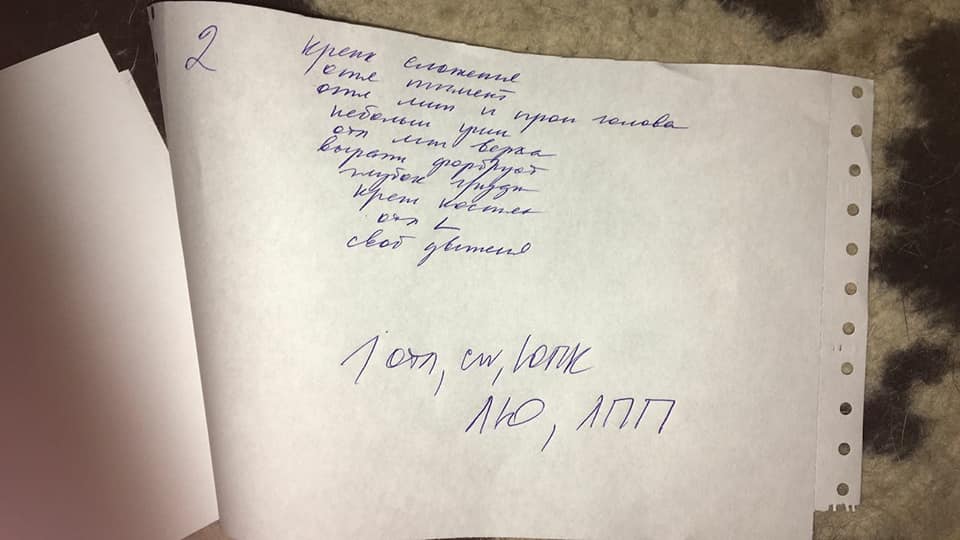 2
крепк сложения
отл пигмент
отл лин и проп голова
небольш уши
отл лин верха
выраж форбруст
глубок груди
креп костяк
отл L
своб движения
1 отл, cw, ЮПК
ЛЮ, ЛПП